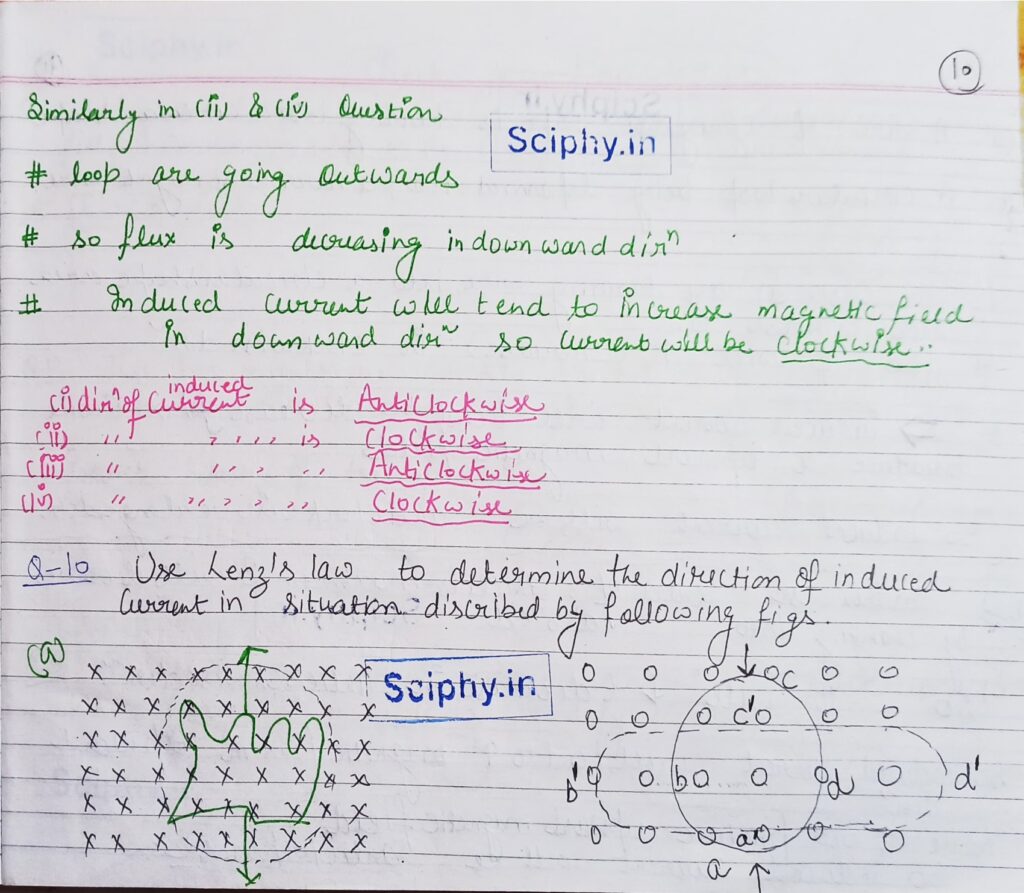 10
Similarly in (ii) & (iv) Question
Sciphy.in
# loop are going outwards
# so flux is decreasing in downward dirⁿ
# Induced current will tend to increase magnetic field
in downward dirⁿ so current will be clockwise..
(i) dirⁿ of induced current is Anticlockwise
(ii) " " " " is Clockwise
(iii) " " " " Anticlockwise
(iv) " " " " Clockwise
Q-10 Use Lenz's law to determine the direction of induced
current in situation discribed by following figs.
(a)
Sciphy.in
c
c'
b' b d d'
a'
a